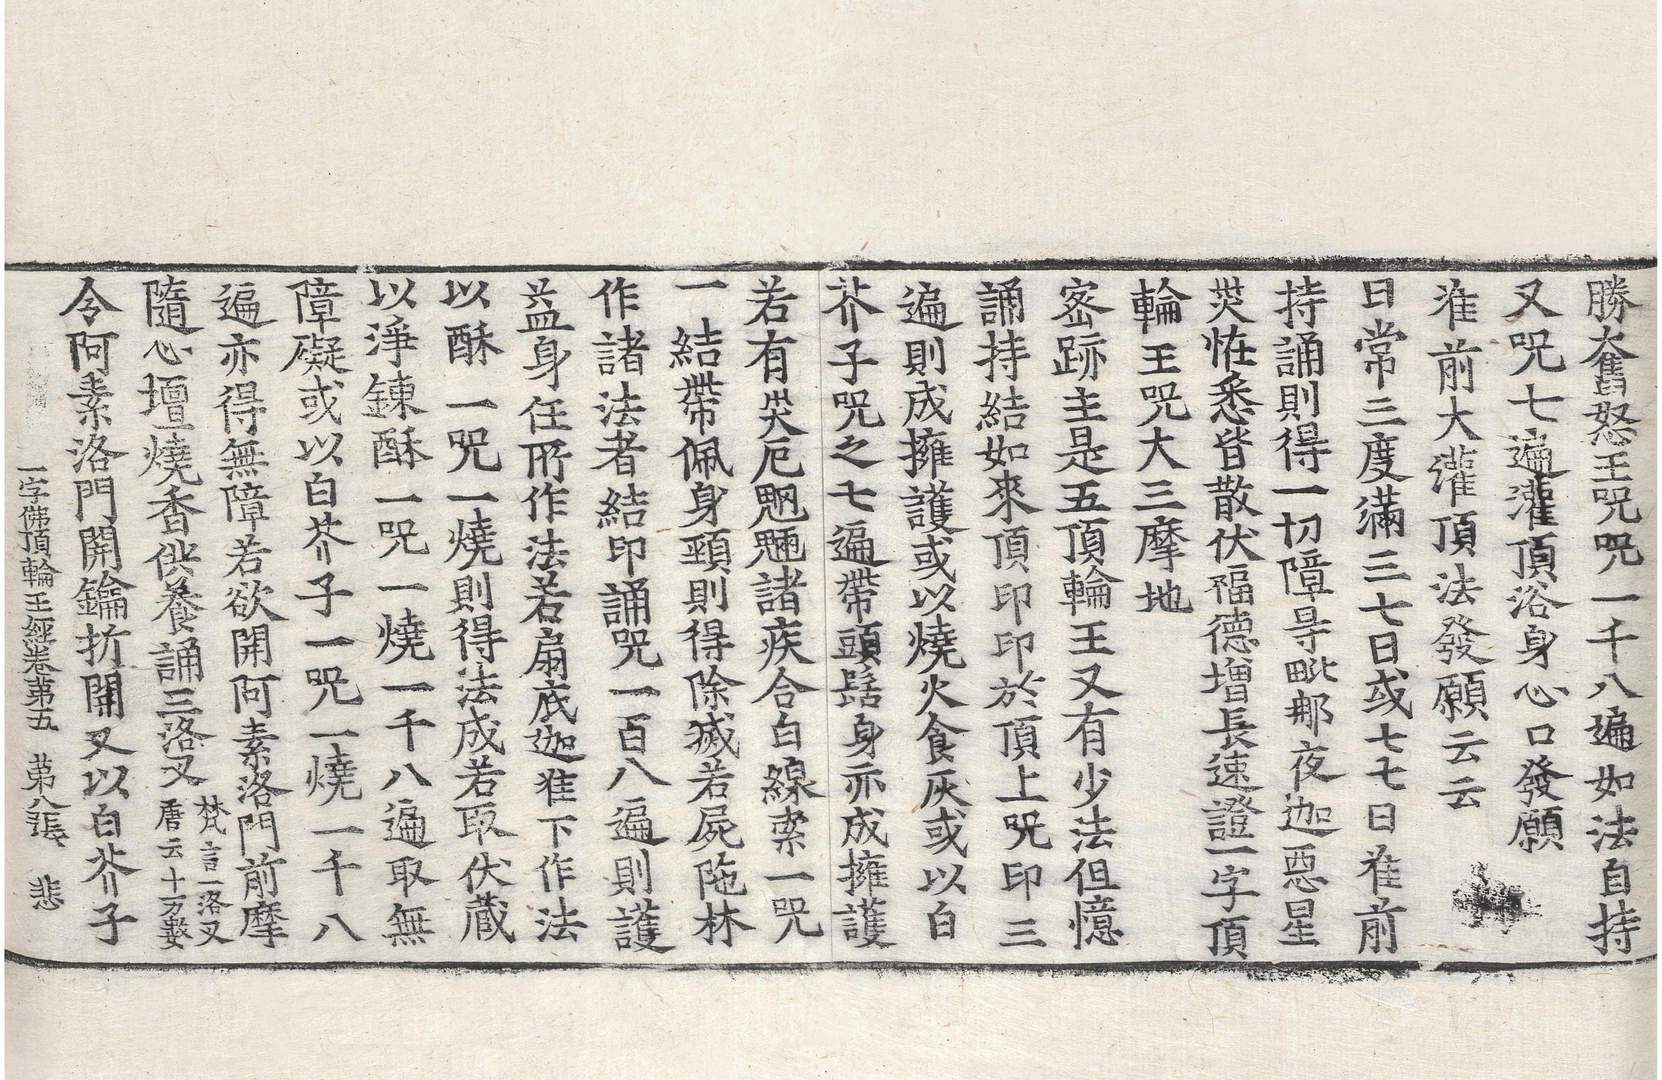 勝大奮怒王呪呪一千八遍如法自持
又呪七遍灌頂浴身心口發願
准前大灌頂法發願云云
日常三度滿三七日或七七日准前
持誦則得一切障㝵毗那夜迦惡星
災恠悉皆散伏福德增長速證一字頂
輪王呪大三摩地
密跡主是五頂輪王又有少法但憶
誦持結如來頂印印於頂上呪印三
遍則成擁護或以燒火食灰或以白
芥子呪之七遍帶頭髻身亦成擁護
若有災厄魍魎諸疾合白線索一呪
一結帶佩身頸則得除滅若屍陁林
作諸法者結印誦呪一百八遍則護
益身任所作法若扇底迦准下作法
以酥一呪一燒則得法成若取伏藏
以淨鍊酥一呪一燒一千八遍取無
障礙或以白芥子一呪一燒一千八
遍亦得無障若欲開阿素洛門前摩
隨心壇燒香供養誦三洛叉梵言一洛叉唐云十万數
令阿素洛門開鑰拆開又以白芥子
一字佛頂輪王經卷第五 第八張 悲